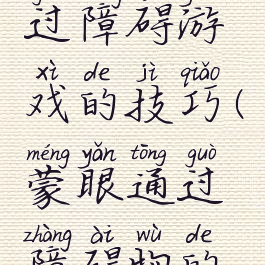 过障碍游
xì de jì qiǎo
戏的技巧(
méng yǎn tōng guò
蒙眼通过
zhàng ài wù de
障碍物的